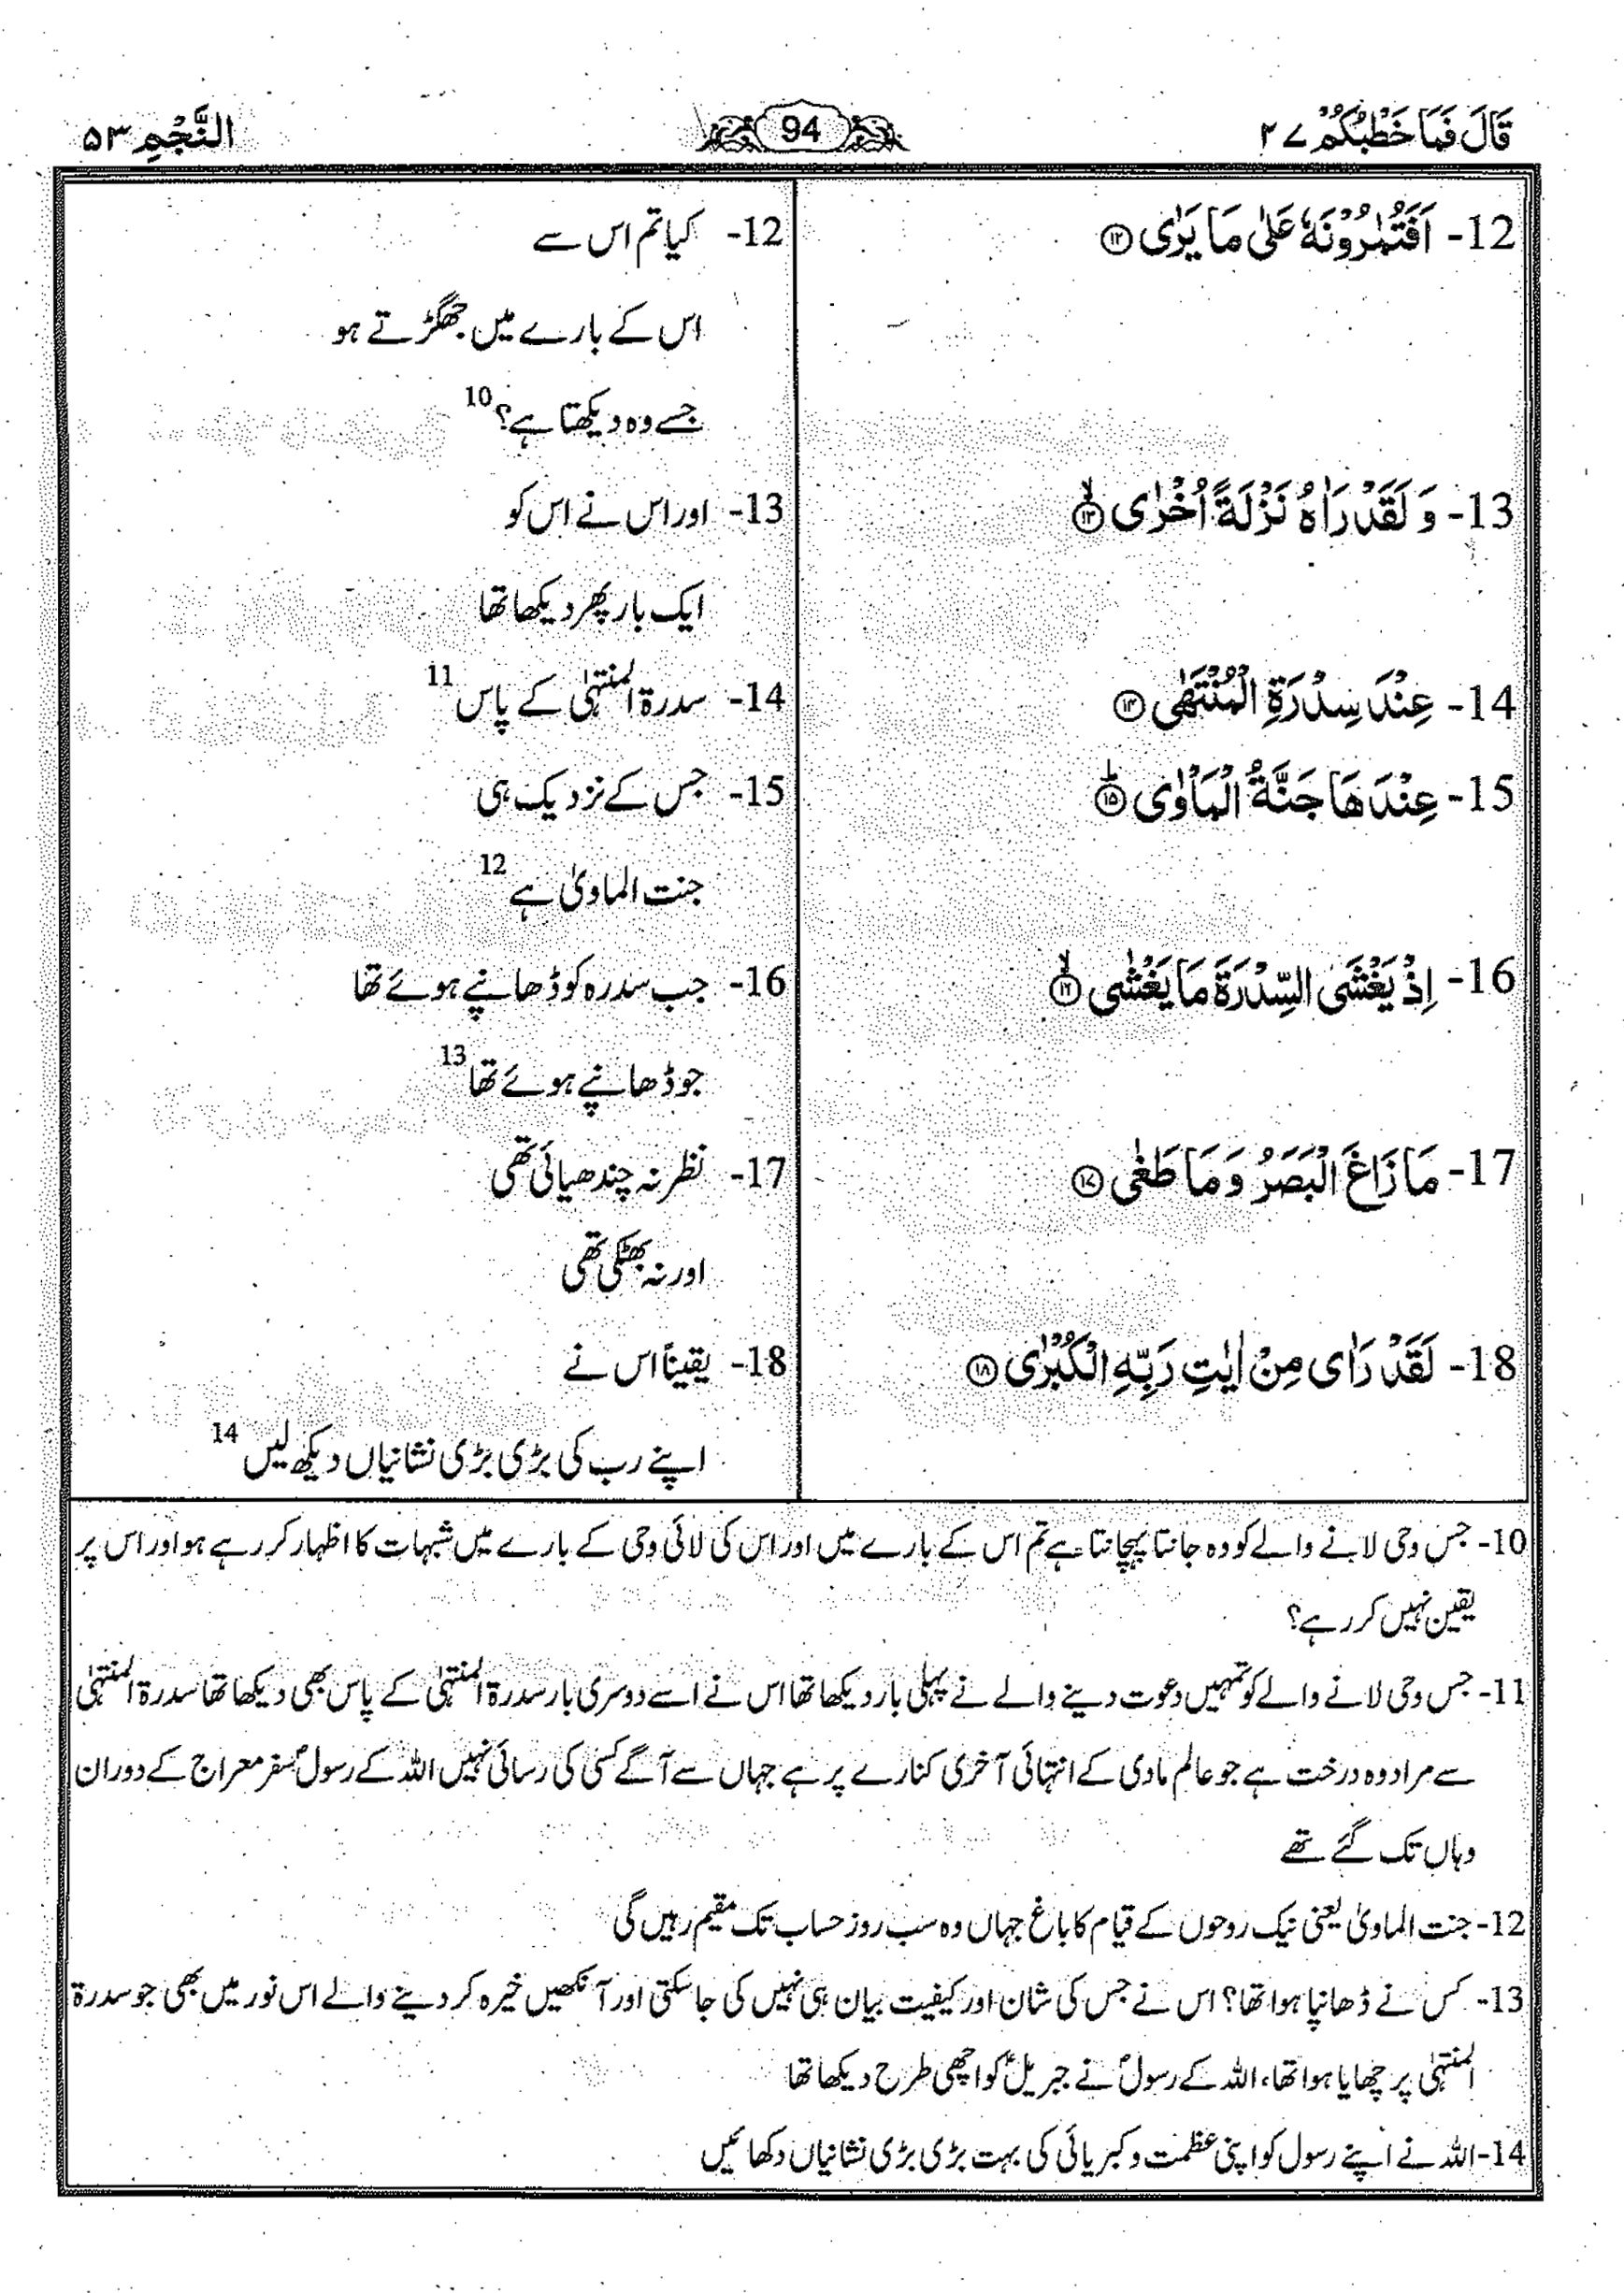 قَالَ فَمَا خَطْبُكُمْ ۲۷
94
النَّجْمِ ۵۳
12- اَفَتُمٰرُوْنَهٗ عَلٰى مَا يَرٰى ⑫
13- وَ لَقَدْ رَاٰهُ نَزْلَةً اُخْرٰى ⑬ۙ
14- عِنْدَ سِدْرَةِ الْمُنْتَهٰى ⑭
15- عِنْدَهَا جَنَّةُ الْمَاْوٰى ⑮ؕ
16- اِذْ يَغْشَى السِّدْرَةَ مَا يَغْشٰى ⑯ۙ
17- مَا زَاغَ الْبَصَرُ وَ مَا طَغٰى ⑰
18- لَقَدْ رَاٰى مِنْ اٰيٰتِ رَبِّهِ الْكُبْرٰى ⑱
12- کیا تم اس سے
اس کے بارے میں جھگڑتے ہو
جسے وہ دیکھتا ہے؟ 10
13- اور اس نے اس کو
ایک بار پھر دیکھا تھا
14- سدرۃ المنتہیٰ کے پاس 11
15- جس کے نزدیک ہی
جنت الماویٰ ہے 12
16- جب سدرہ کو ڈھانپے ہوئے تھا
جو ڈھانپے ہوئے تھا 13
17- نظر نہ چندھیائی تھی
اور نہ بھٹکی تھی
18- یقیناً اس نے
اپنے رب کی بڑی بڑی نشانیاں دیکھ لیں 14
10- جس وحی لانے والے کو وہ جانتا پہچانتا ہے تم اس کے بارے میں اور اس کی لائی وحی کے بارے میں شبہات کا اظہار کر رہے ہو اور اس پر
یقین نہیں کر رہے؟
11- جس وحی لانے والے کو تمہیں دعوت دینے والے نے پہلی بار دیکھا تھا اس نے اسے دوسری بار سدرۃ المنتہیٰ کے پاس بھی دیکھا تھا سدرۃ المنتہیٰ
سے مراد وہ درخت ہے جو عالم مادی کے انتہائی آخری کنارے پر ہے جہاں سے آگے کسی کی رسائی نہیں اللہ کے رسولؐ سفر معراج کے دوران
وہاں تک گئے تھے
12- جنت الماویٰ یعنی نیک روحوں کے قیام کا باغ جہاں وہ سب روز حساب تک مقیم رہیں گی
13- کس نے ڈھانپا ہوا تھا؟ اس نے جس کی شان اور کیفیت بیان ہی نہیں کی جا سکتی اور آنکھیں خیرہ کر دینے والے اس نور میں بھی جو سدرۃ
المنتہیٰ پر چھایا ہوا تھا، اللہ کے رسولؐ نے جبریلؑ کو اچھی طرح دیکھا تھا
14- اللہ نے اپنے رسول کو اپنی عظمت و کبریائی کی بہت بڑی بڑی نشانیاں دکھائیں